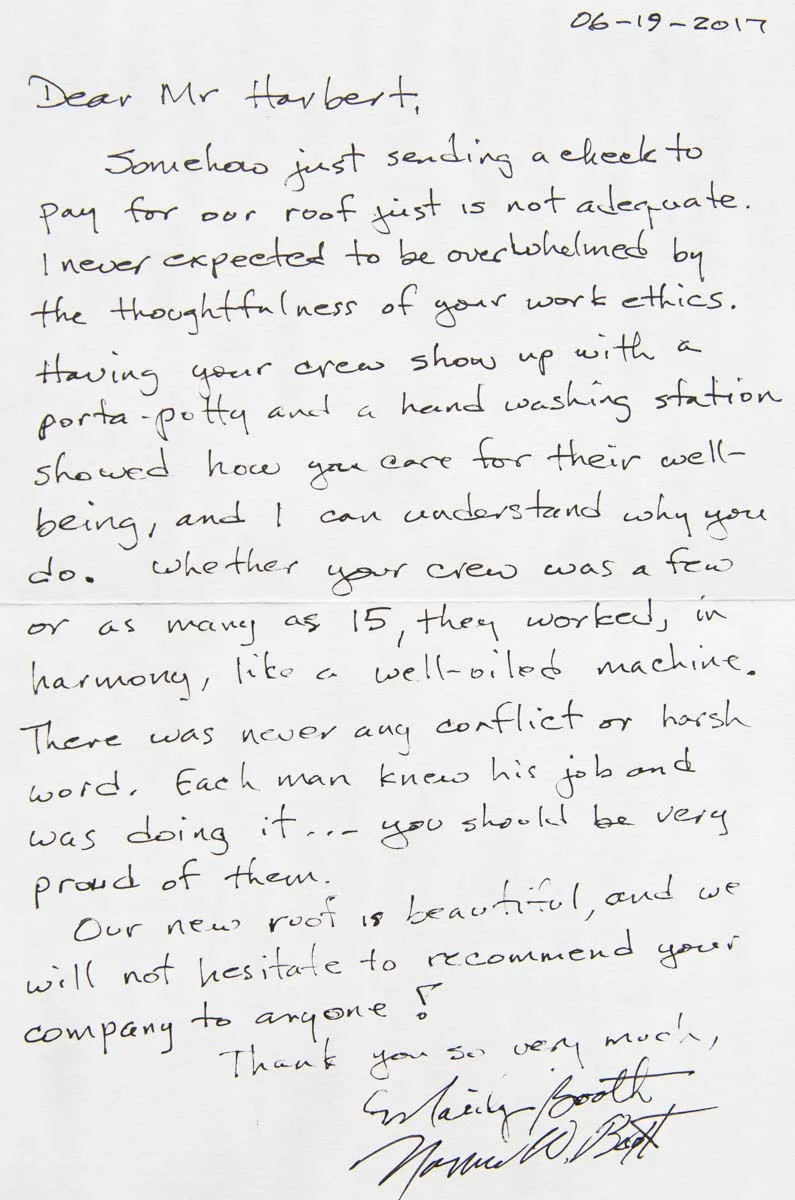 06-19-2017
Dear Mr Harbert,
Somehow just sending a check to
pay for our roof just is not adequate.
I never expected to be overwhelmed by
the thoughtfulness of your work ethics.
Having your crew show up with a
porta-potty and a hand washing station
showed how you care for their well-
being, and I can understand why you
do. Whether your crew was a few
or as many as 15, they worked, in
harmony, like a well-oiled machine.
There was never any conflict or harsh
word. Each man knew his job and
was doing it... you should be very
proud of them.
Our new roof is beautiful, and we
will not hesitate to recommend your
company to anyone!
Thank you so very much,
Booth
W. Booth